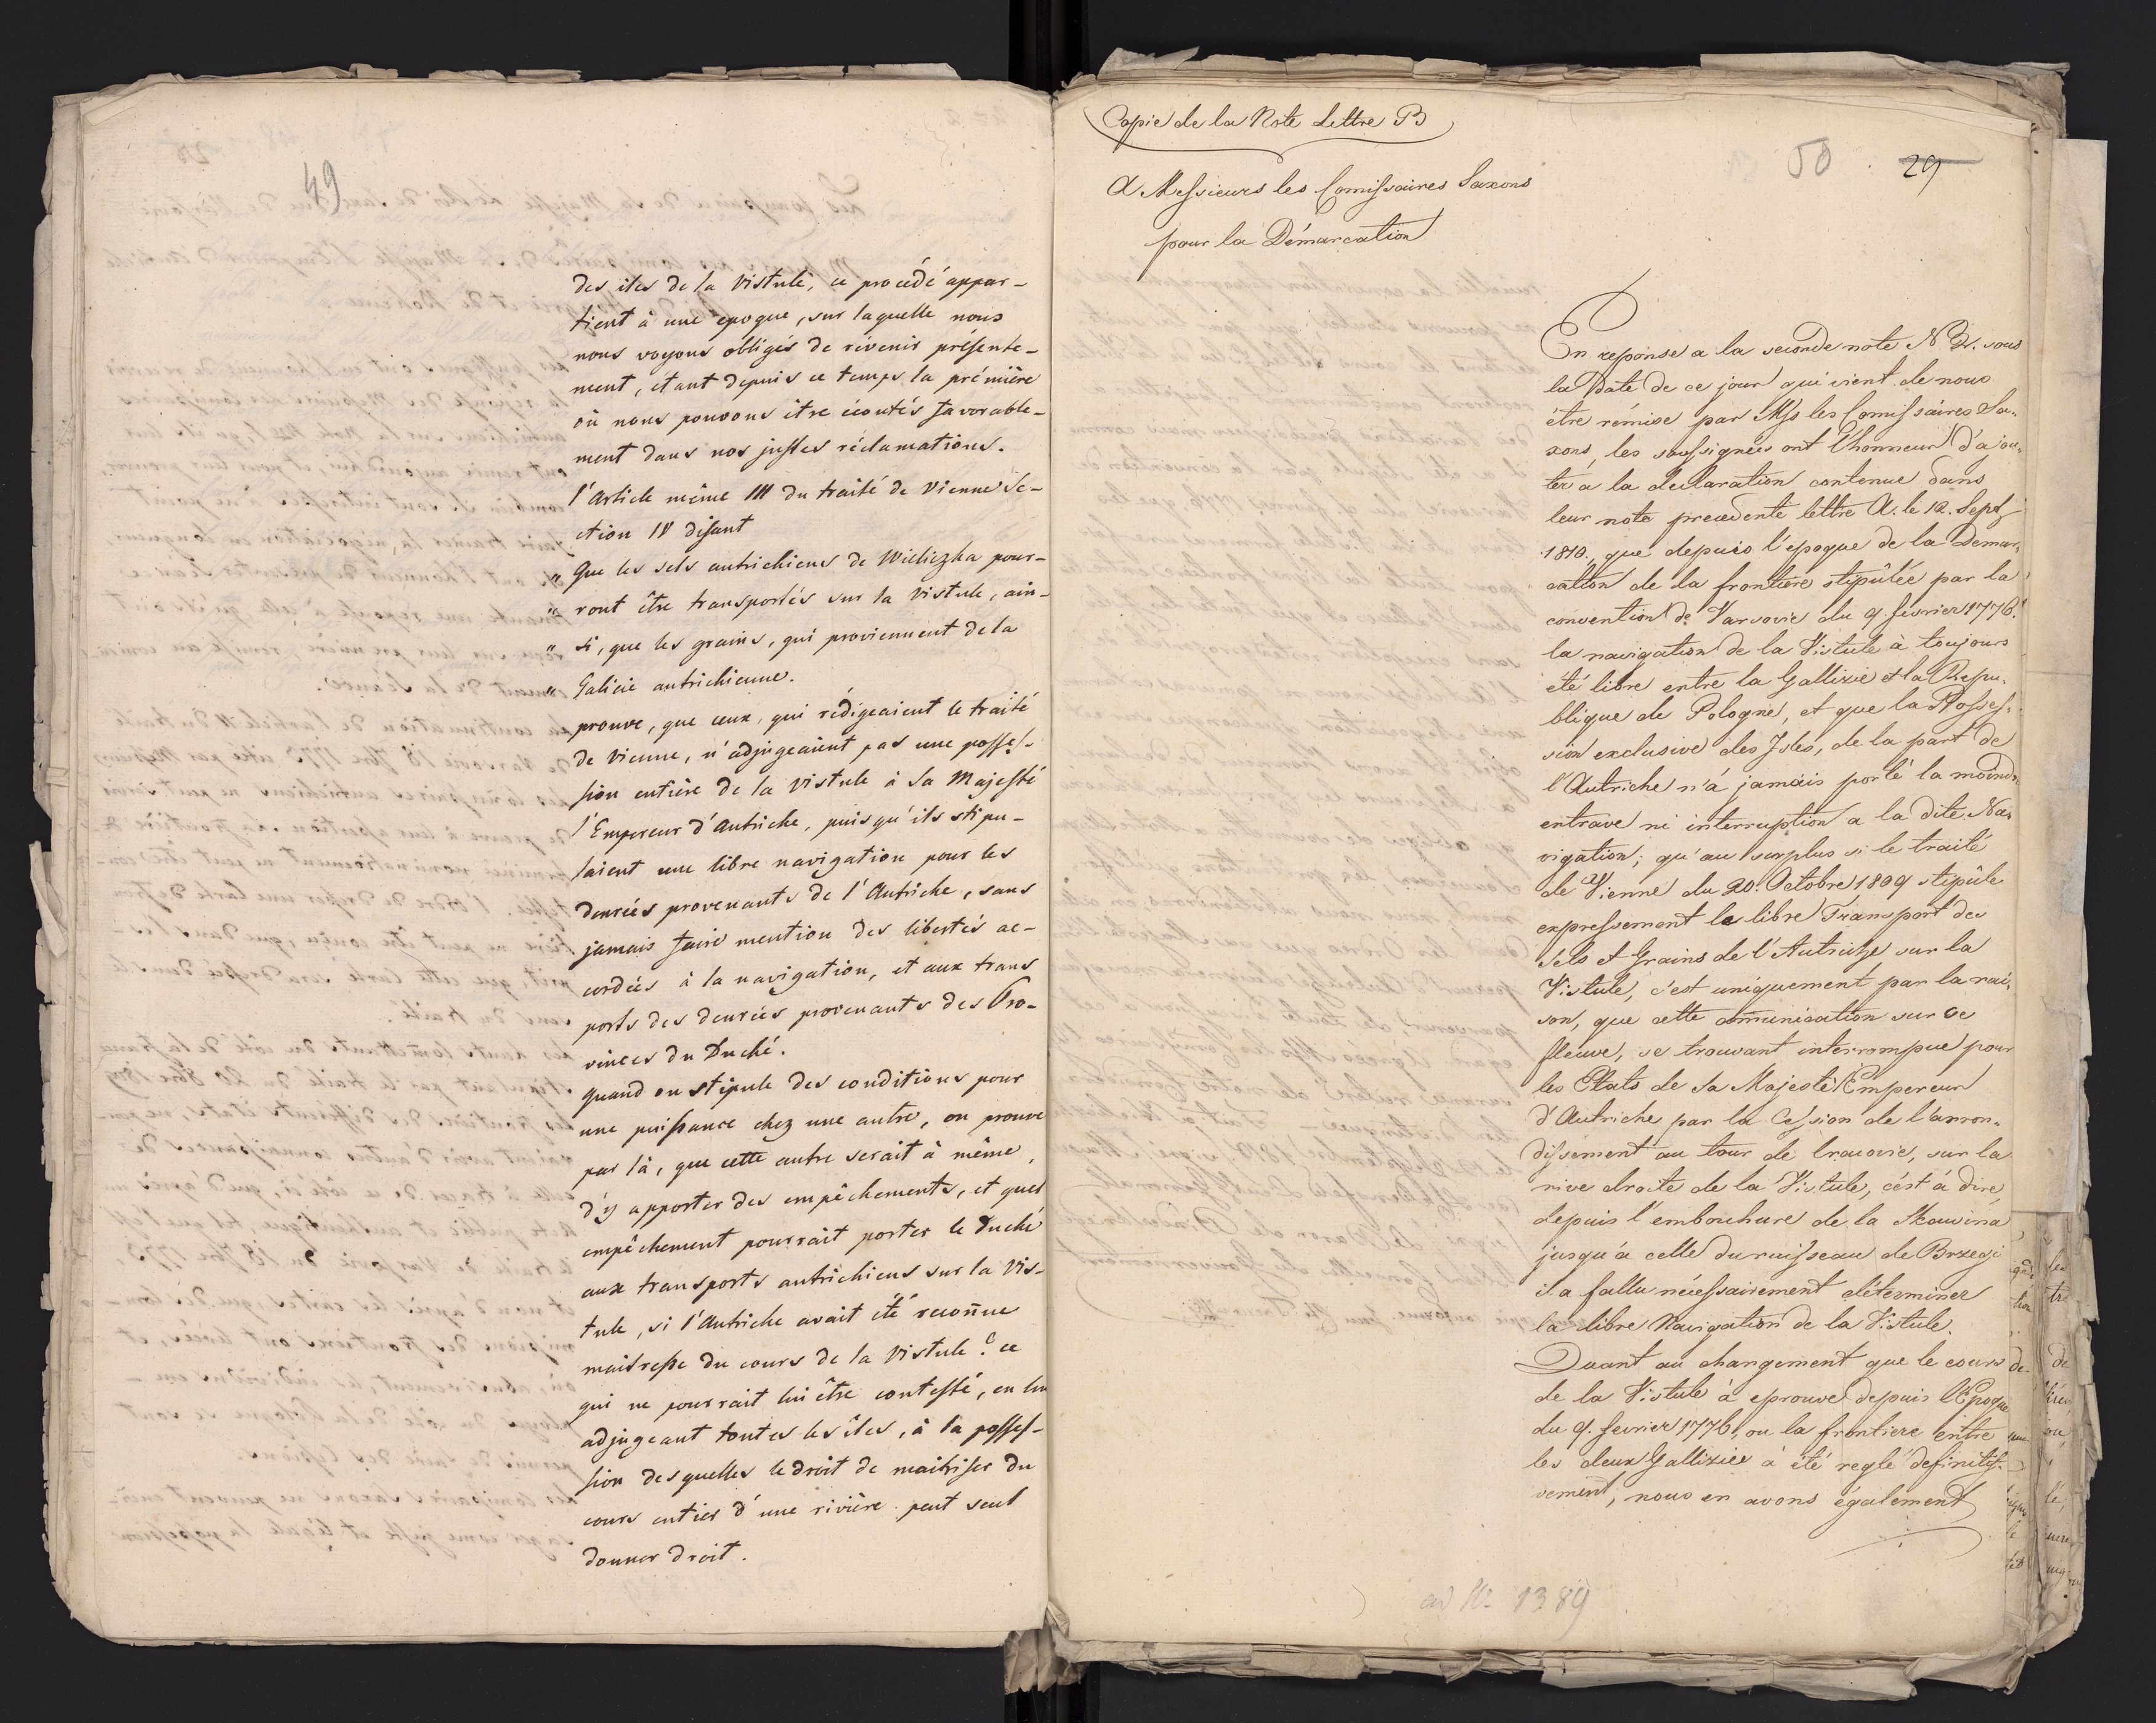 49
des iles de la Vistule, ce procédé appar-
tient à une epoque, sur laquelle nous
nous voyons obligés de révenir présente-
ment, étant depuis ce temps la prémière
où nous pouvons être écoutés favorable-
ment dans nos justes réclamations.
l'Article même III du traité de Vienne Se-
ction IV disant
" Que les sels autrichiens de Wieliczka pour-
" ront être transportés sur la Vistule, ain-
" si, que les grains, qui proviennent de la
" Galicie autrichienne.
prouve, que ceux, qui rédigeaient le traité
de Vienne, n'adjugeaient pas une posses-
sion entière de la Vistule à Sa Majesté
l'Empereur d'Autriche, puisqu'ils stipu-
laient une libre navigation pour les
denrées provenants de l'Autriche, sans
jamais faire mention des libertés ac-
cordées à la navigation, et aux trans
ports des denrées provenants des Pro-
vinces du Duché.
quand on stipule des conditions pour
une puissance chez une autre, on prouve
par là, que cette autre serait à même
d'y apporter des empêchements, et quel
empêchement pourrait porter le Duché
aux transports autrichiens sur la Vis-
tule, si l'Autriche avait été reconnue
maitresse du cours de la Vistule? ce
qui ne pourrait lui être contesté, en lui
adjugeant toutes les îles, à la posses-
sion desquelles le droit de maitriser du
cours entier d'une rivière peut seul
donner droit.
Copie de la Note Lettre B
50 29
A Messieurs les Comissaires Saxons
pour la Démarcation
En reponse a la seconde note N 2. sous
la Date de ce jour qui vient de nous
être rémise par Mss les Comissaires Sa-
xons, les soussignées ont l'honneur d'ajou-
ter a la declaration contenue dans
leur note precedente lettre A. le 12. Sept
1810., que depuis l'epoque de la Demar-
cation de la frontiere stipulée par la
convention de Varsovie du 9. fevrier 1776.
la navigation de la Vistule à toujours
été libre entre la Gallizie et la Repu-
blique de Pologne, et que la Posses-
sion exclusive des Isles, de la part de
l'Autriche n'à jamais porté la moind
entrave ni interruption a la dite Na-
vigation; qu'au surplus si le traité
de Vienne du 20. Octobre 1809 stipûle
expressement le libre Transport des
Sels et Grains de l'Autriche sur la
Vistule, c'est uniquement par la rai-
son, que cette comunication sur ce
fleuve, se trouvant interrompue pour
les Etats de Sa Majesté l'Empereur
d'Autriche par la Cession de l'arron-
dissement au tour de Cracovie, sur la
rive droite de la Vistule, c'est à dire
depuis l'embouchure de la Skawina
jusqu'a celle du ruisseau de Brzegi
il a fallu nécessairement déterminer
la libre Navigation de la Vistule.
Quant au changement que le cours
de la Vistule à eprouvé depuis l'Epoque
du 9. fevrier 1776, ou la frontiere entre
les deux Gallizies à été reglé definitif-
vement, nous en avons également
ad N. 1389